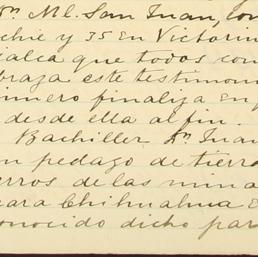 Dn. Ml. San Juan, con
chie y 35 en Victorin
ialca que todos con
braza este testimoni
rimero finaliza en f
desde ella al fin.
Bachiller Dn. Juan
un pedazo de tierra
erros de las mina
para Chihuahua e
onocido dicho par